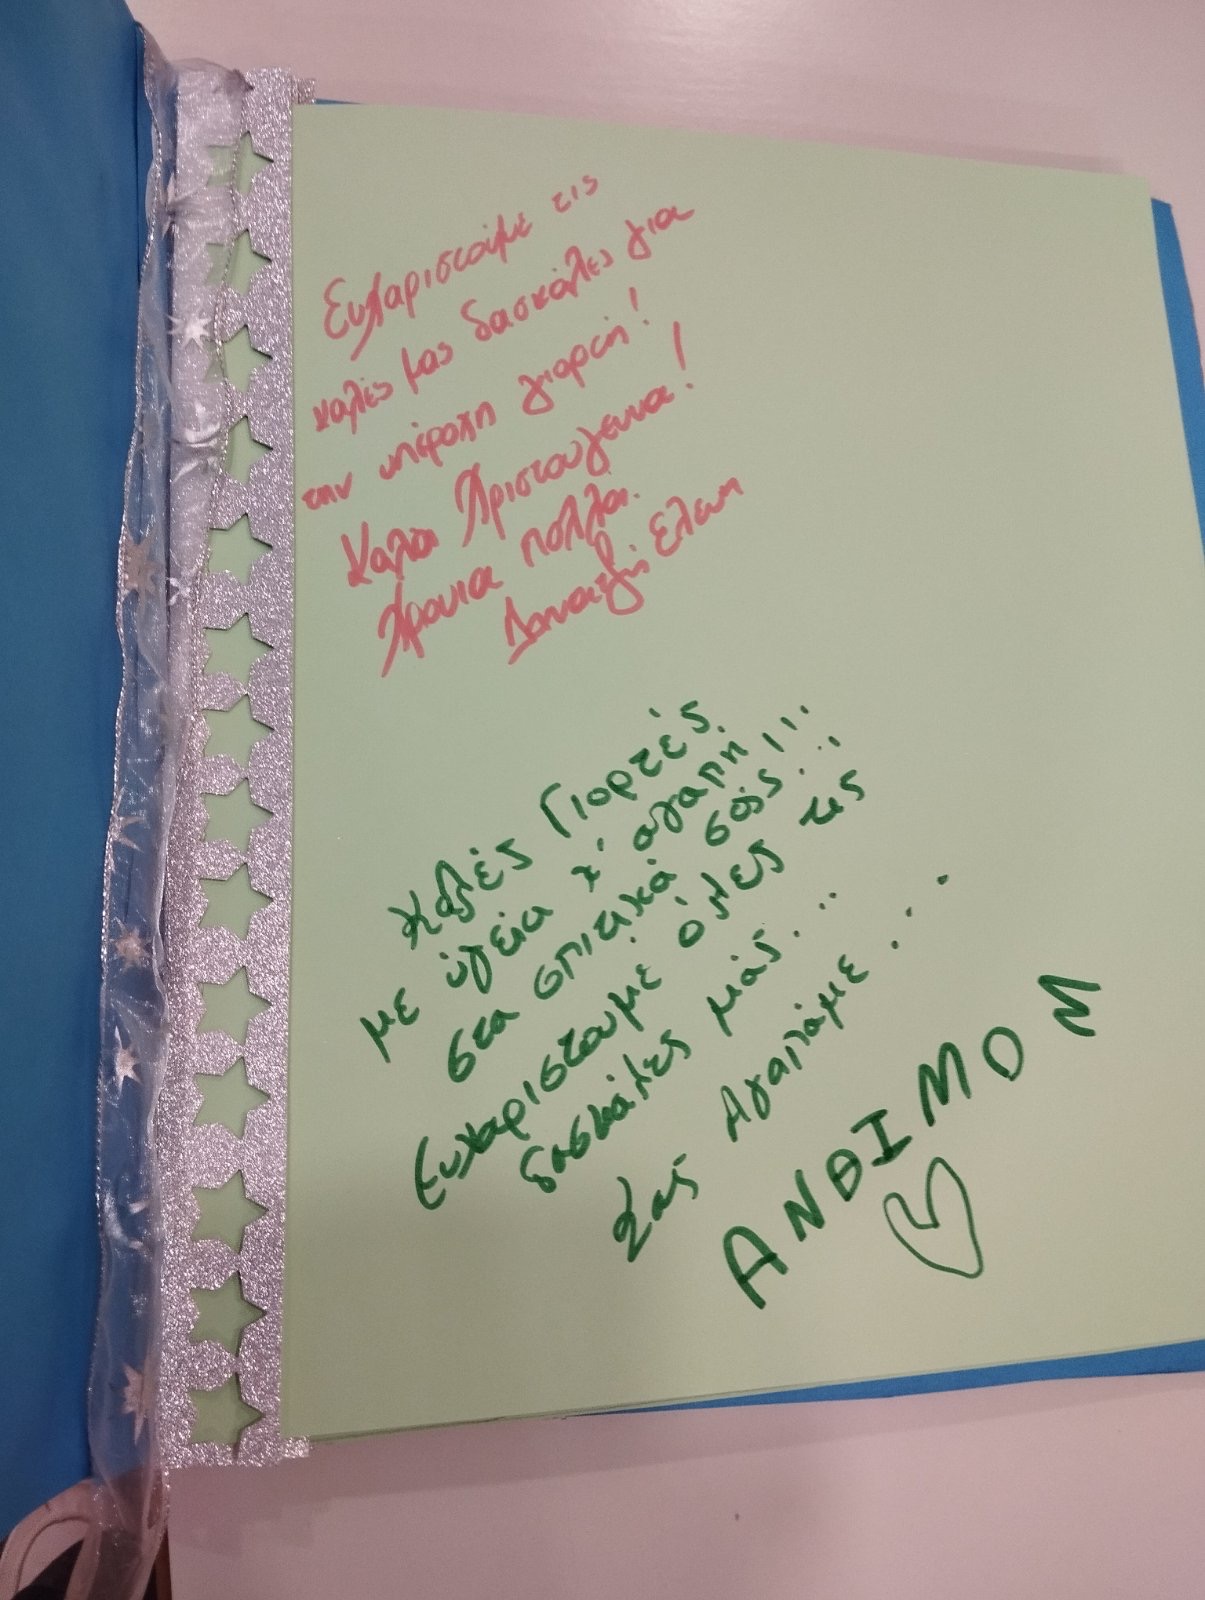 Ευχαριστούμε τις
καλές μας δασκάλες για
την υπέροχη γιορτή!
Καλά Χριστούγεννα!
Χρόνια πολλά.
Ελένη
Καλές Γιορτές
με ύγεία κ' αγάπη!!!
στα σπιτικά σάς...
Ευχαριστουμε όλες τις
δασκάλες μάς...
Σας Αγαπάμε...
ΑΝΘΙΜΟΝ